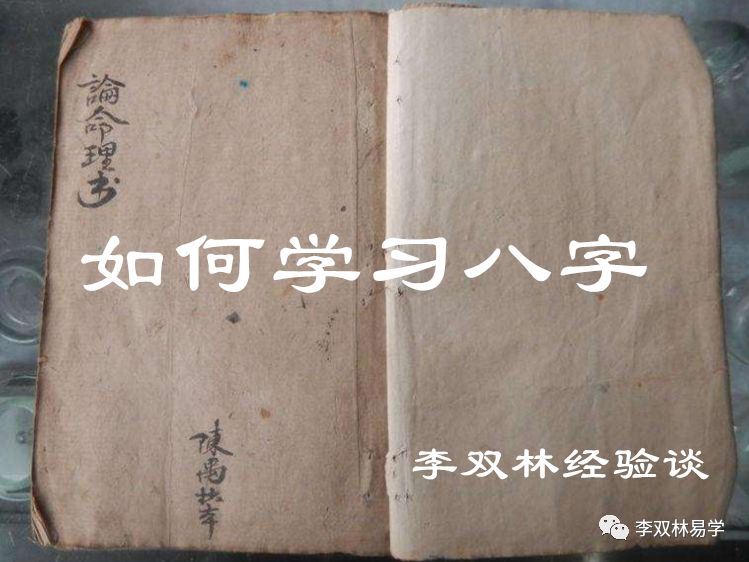 論命理书
如何学习八字
陳禹本
李双林经验谈
李双林易学